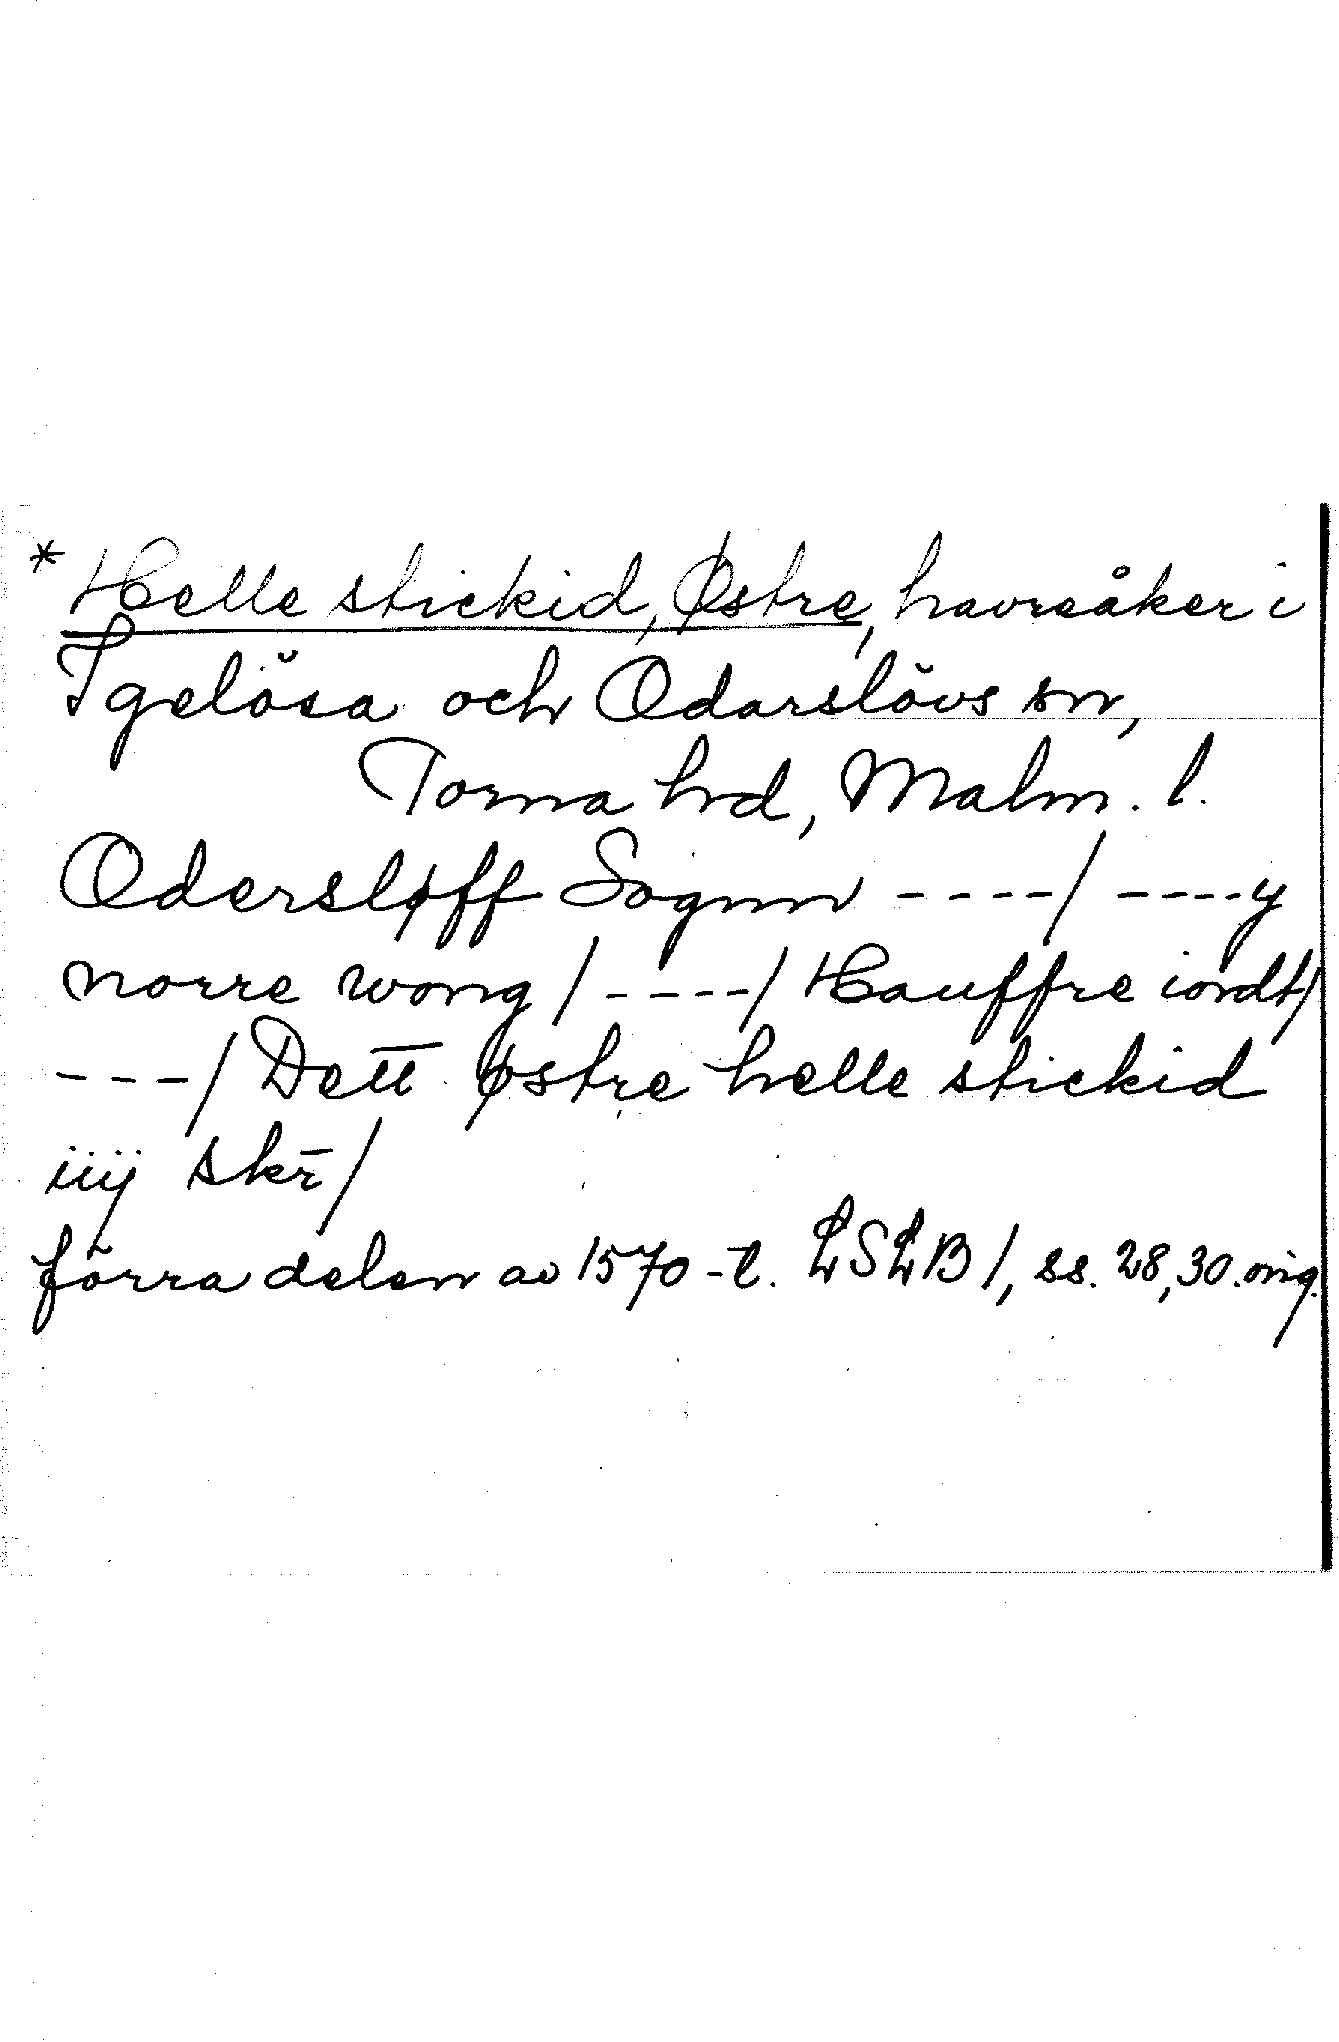 * Helle stickid, Østre, havreåker i
Igelösa och Odarslövs sn,
Torna hd, Malm. l.
Odersløff Sognn ----/ ----y
norre wong / ----/ Hauffre iordt/
---/ Dett østre helle stickid
iiij skr̄/
förra delen av 1570-t. LSLB 1, ss. 28, 30. orig.